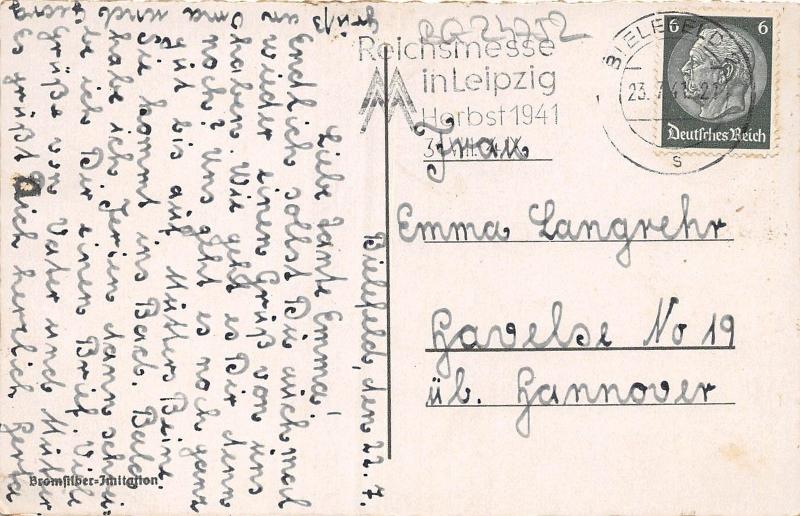 RG 24252
Reichsmesse
in Leipzig
Herbst 1941
BIELEFELD
23.7.41
s
6 6
Deutsches Reich
Frau
Emma Langrehr
Havelse No 19
üb. Hannover
Bielefeld, den 22. 7.
Liebe Tante Emma!
Endlich sollst Du auch mal
wieder einen Gruß von uns
haben. Wie geht es Dir denn
noch? Uns geht es noch ganz
gut bis auf Mutters Bein.
Sie kommt ins Bad. Bald
habe ich Ferien dann schrei-
be ich Dir einen Brief. Viele
Grüße von Vater und Mutter
Es grüßt Dich herzlich Gerda
Oma und
grüß
Bromsilber-Imitation